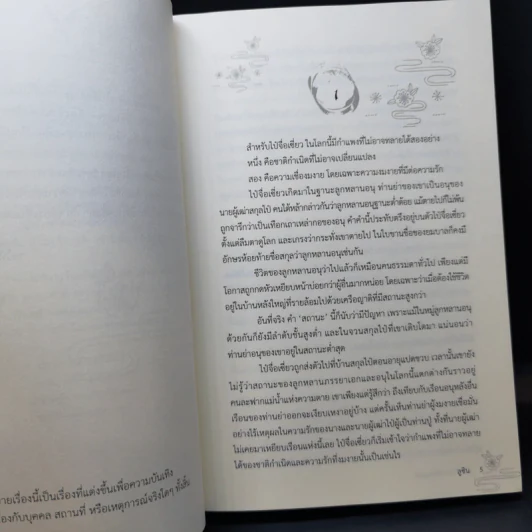 ายเรื่องนี้เป็นเรื่องที่แต่งขึ้นเพื่อความบันเทิง
องกับบุคคล สถานที่ หรือเหตุการณ์จริงใดๆ ทั้งสิ้น
1
สำหรับไป๋จื่อเซี่ยว ในโลกนี้มีกำแพงที่ไม่อาจทลายได้สองอย่าง
หนึ่ง คือชาติกำเนิดที่ไม่อาจเปลี่ยนแปลง
สอง คือความเชื่องมงาย โดยเฉพาะความงมงายที่มีต่อความรัก
ไป๋จื่อเซี่ยวเกิดมาในฐานะลูกหลานอนุ ท่านย่าของเขาเป็นอนุของ
นายผู้เฒ่าสกุลไป๋ คนใต้หล้ากล่าวกันว่าลูกหลานอนุฐานะต่ำต้อย แม้ตายไปก็ไม่พ้น
ถูกจารึกว่าเป็นเทือกเถาเหล่ากอของอนุ คำคำนี้ประทับตรึงอยู่บนตัวไป๋จื่อเซี่ยว
ตั้งแต่ลืมตาดูโลก และเกรงว่ากระทั่งเขาตายไป ในใบขานชื่อของยมบาลก็คงมี
อักษรห้อยท้ายชื่อสกุลว่าลูกหลานอนุเช่นกัน
ชีวิตของลูกหลานอนุว่าไปแล้วก็เหมือนคนธรรมดาทั่วไป เพียงแต่มี
โอกาสถูกกดหัวเหยียบหน้าบ่อยกว่าผู้อื่นมากหน่อย โดยเฉพาะว่าเมื่อต้องใช้ชีวิต
อยู่ในบ้านหลังใหญ่ที่รายล้อมไปด้วยเครือญาติที่มีสถานะสูงกว่า
อันที่จริง คำ ‘สถานะ’ นี้ก็นับว่ามีปัญหา เพราะแม้ในหมู่ลูกหลานอนุ
ด้วยกันก็ยังมีลำดับชั้นสูงต่ำ และในจวนสกุลไป๋ที่เขาเติบโตมา แน่นอนว่า
ท่านย่าอนุของเขาอยู่ในสถานะต่ำสุด
ไป๋จื่อเซี่ยวถูกส่งตัวไปที่บ้านสกุลไป๋ตอนอายุแปดขวบ เวลานั้นเขายัง
ไม่รู้ว่าสถานะของลูกหลานภรรยาเอกและอนุในโลกนี้แตกต่างกันราวอยู่
คนละฟากแม่น้ำแห่งความตาย เขาเพียงแต่รู้สึกว่า ถึงเทียบกับเรือนอนุหลังอื่น
เรือนของท่านย่าออกจะเงียบเหงาอยู่บ้าง แต่ครั้นเห็นท่านย่าผู้งมงายเชื่อมั่น
อย่างไร้เหตุผลในความรักของนางและนายผู้เฒ่าไป๋ผู้เป็นท่านปู่ ทั้งที่นายผู้เฒ่า
ไม่เคยมาเหยียบเรือนแห่งนี้เลย ไป๋จื่อเซี่ยวก็เริ่มเข้าใจว่ากำแพงที่ไม่อาจทลาย
ได้ของชาติกำเนิดและความรักที่งมงายนั้นเป็นเช่นไร
อูซิน 5